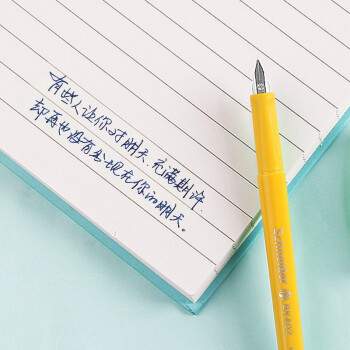 有些人让你对明天充满期许
却再也没有出现在你的明天。
Schneider BK402